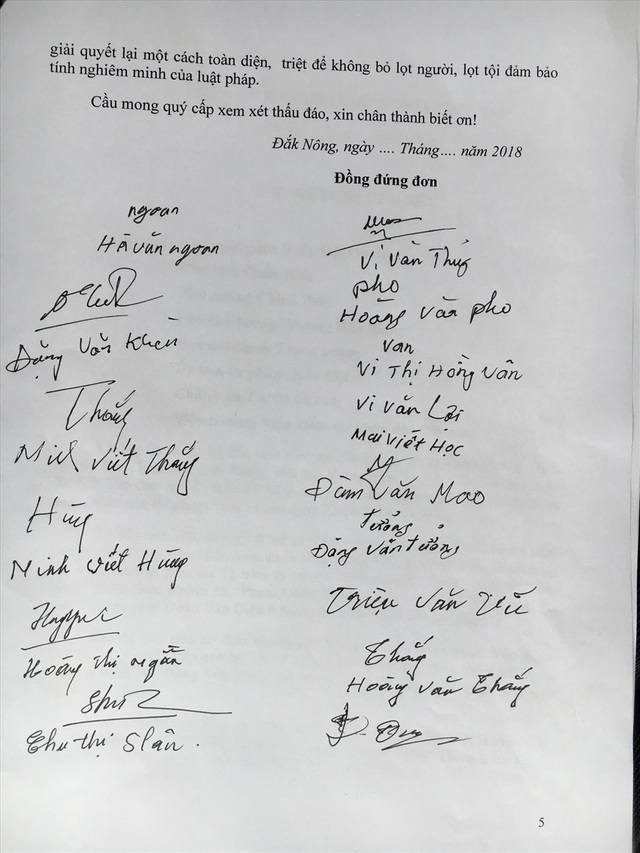 giải quyết lại một cách toàn diện, triệt để không bỏ lọt người, lọt tội đảm bảo
tính nghiêm minh của luật pháp.
Cầu mong quý cấp xem xét thấu đáo, xin chân thành biết ơn!
Đắk Nông, ngày .... Tháng.... năm 2018
Đồng đứng đơn
ngoan
Hà văn ngoan
Đặng Văn Khèn
Thắng
Minh Viết Thắng
Hùng
Minh Viết Hùng
Hoàng thị ngần
Chu thị Slân.
Vi Văn Thủy
pho
Hoàng Văn pho
Van
Vi Thị Hồng Vân
Vi Văn Lai
Mai Viết Học
Đàm Văn Mao
tưởng
Đặng Văn tưởng
Triệu Văn
Thắng
Hoàng Văn Thắng
5